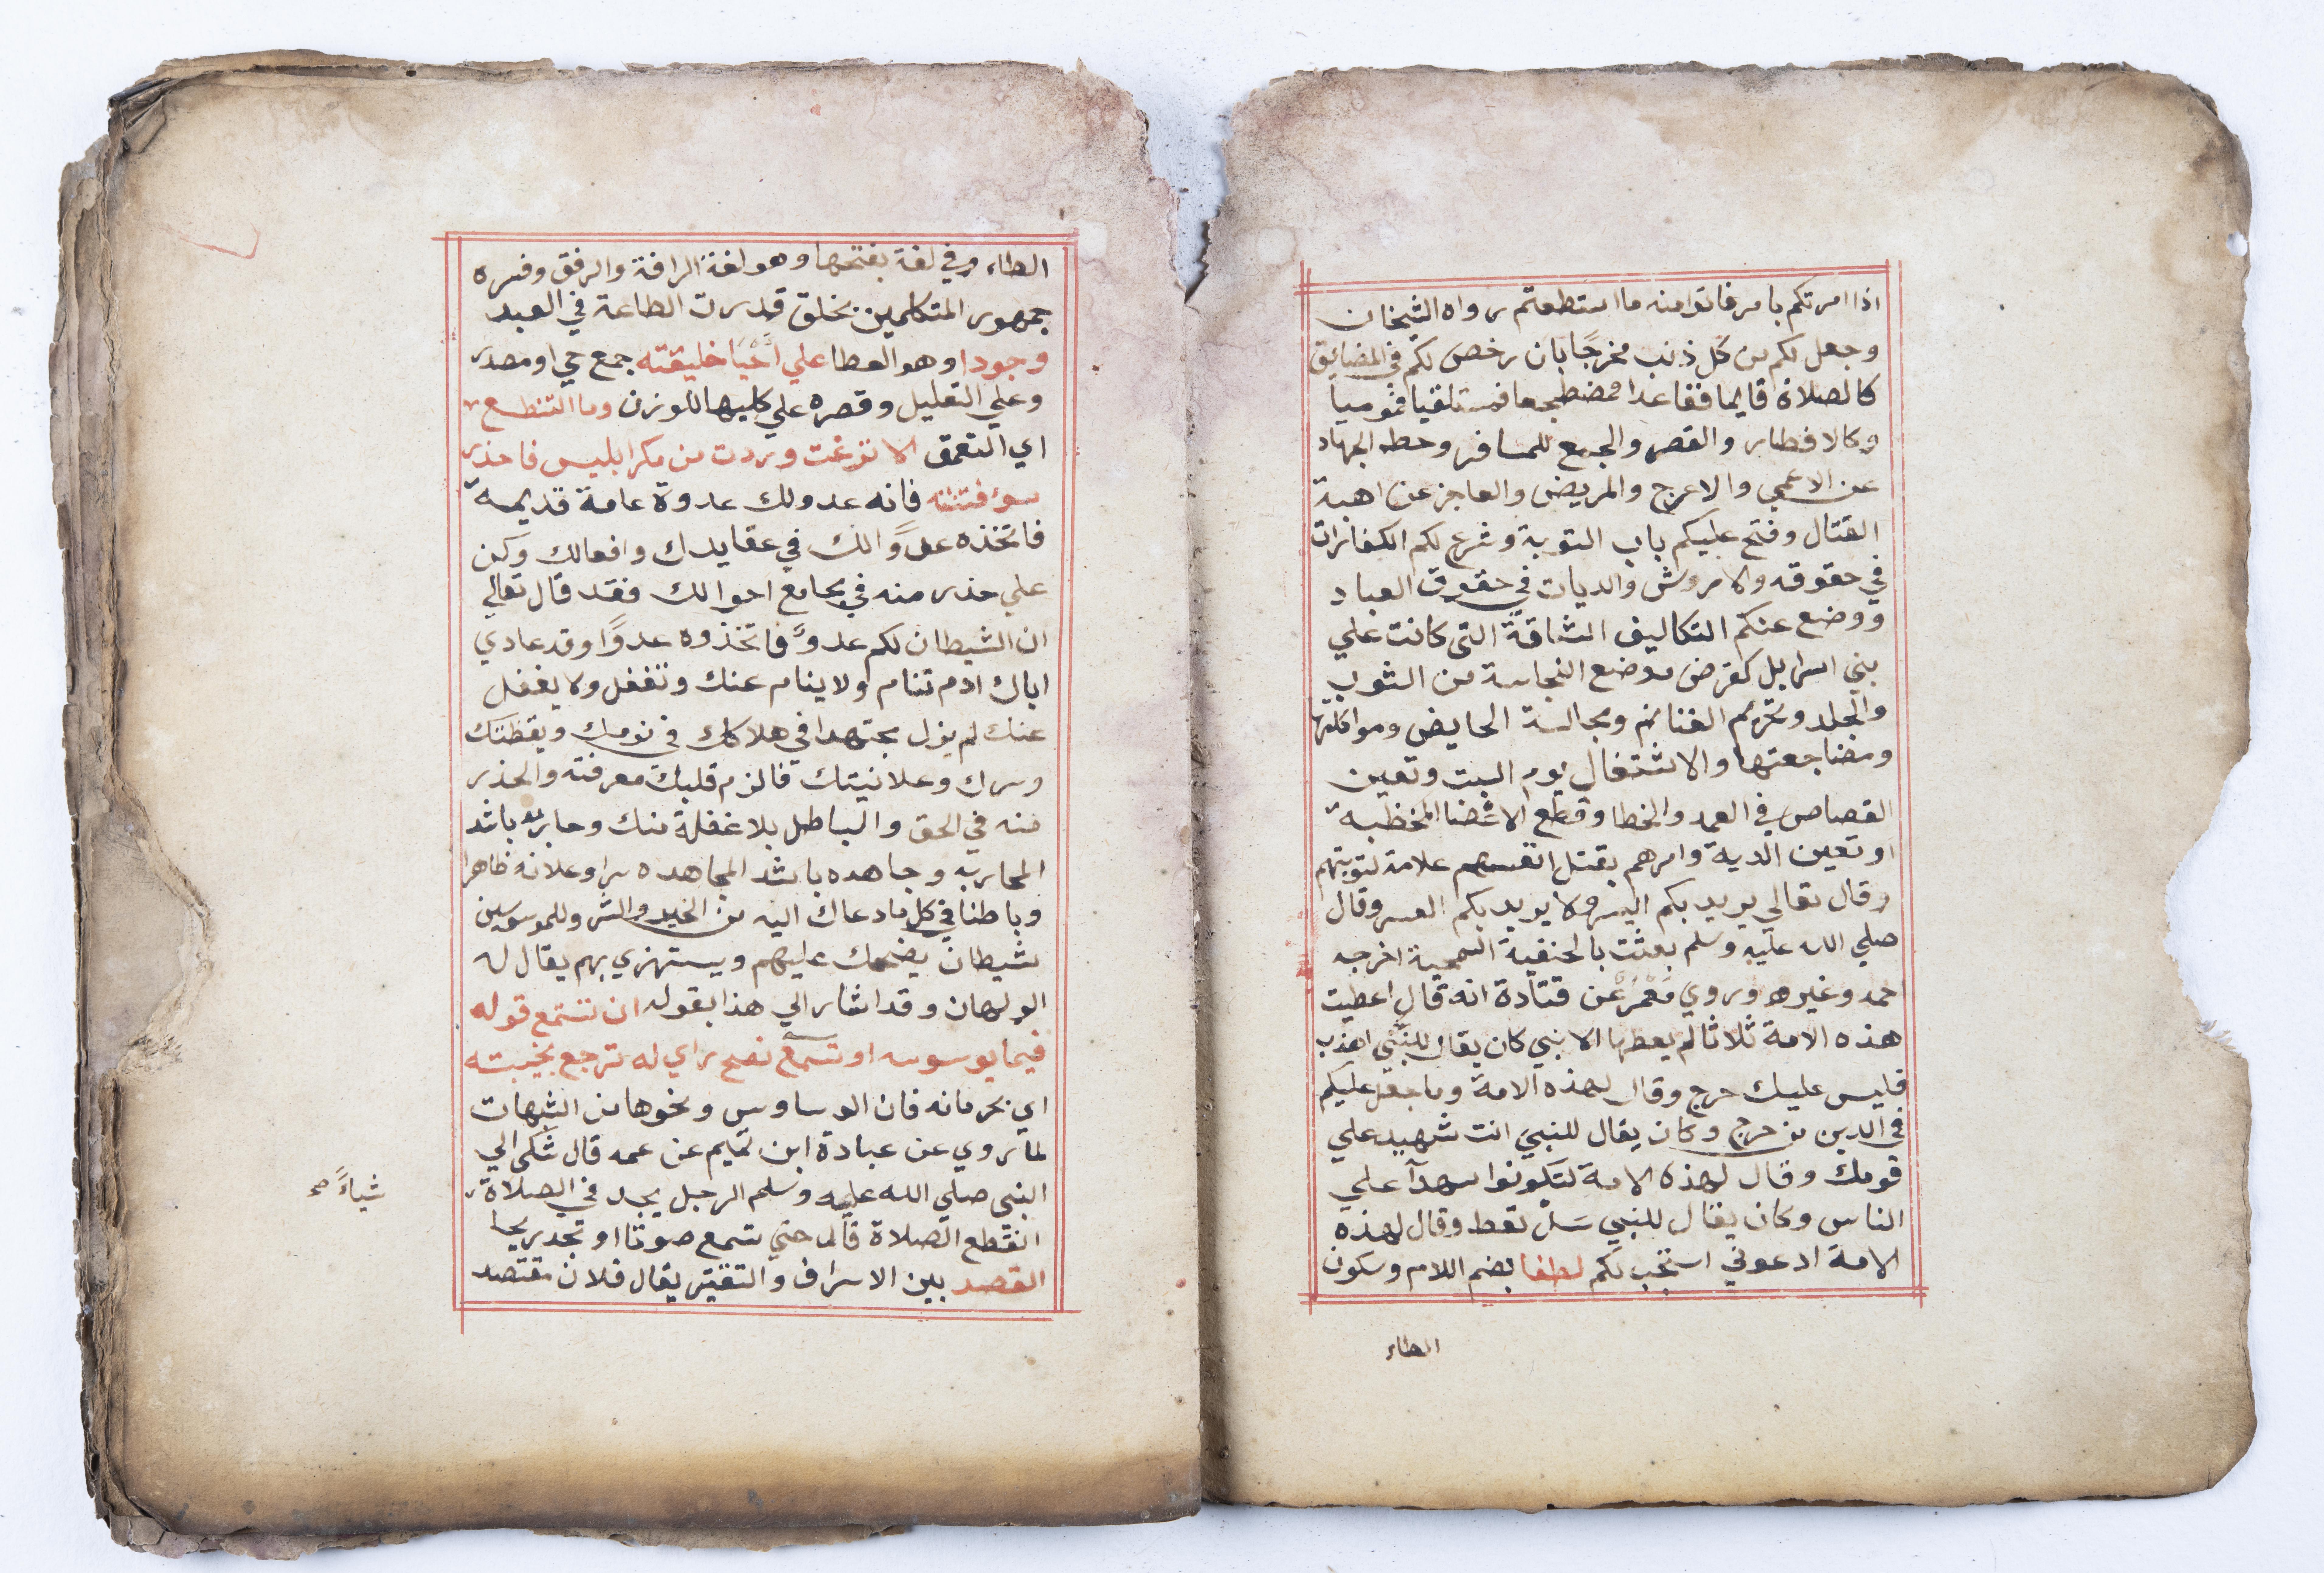 اذا امرتكم بامر فاتوا منه ما استطعتم رواه الشيخان
وجعل لكم من كل ذنب مخرجًا بان رخص لكم في المضايق
كالصلاة قايما فقاعدا فمضطجعا فمستلقيا فموميا
وكالافطار والقصر والجمع للمسافر وحطه الجهاد
عن الاعمي والاعرج والمريض والعاجز عن اهبة
القتال وفتح عليكم باب التوبة وشرع لكم الكفارات
في حقوقه والاروش والديات في حقوق العباد
ووضع عنكم التكاليف الشاقة التي كانت علي
بني اسرايل كقرض موضع النجاسة من الثوب
والجلد وتحريم الغنائم ومجالسة الحايض ومواكلتها
ومضاجعتها والاشتغال يوم السبت وتعين
القصاص في العمد والخطا وقطع الاعضا المخطية
او تعين الدية وامرهم بقتل انفسهم علامة لتوبتهم
وقال تعالي يريد بكم اليسر ولا يريد بكم العسر وقال
صلي الله عليه وسلم بعثت بالحنفية السمحية اخرجه
احمد وغيره وروي مَعْمَرْ عن قتادة انه قال اعطيت
هذه الامة ثلاثا لم يعطها الا نبي كان يقال للنبي اذهب
فليس عليك حرج وقال لهذه الامة وما جعل عليكم
في الدين من حرج وكان يقال للنبي انت شهيد علي
قومك وقال لهذه الامة لتكونوا شهدآ علي
الناس وكان يقال للنبي سَلْ تعط وقال لهذه
الامة ادعوني استجب لكم لطفا بضم اللام وسكون
الطاء
الطاء وفي لغة بفتحها وهو لغة الرافة والرفق وفسره
جمهور المتكلمين بخلق قدرت الطاعة في العبد
وجودا وهو العطا علي اَحْيَا خليقته جمع حي او مصدر
وعلي التعليل وقصره علي كليهما للوزن وما التنطع
اي التعمق الا نزغت وردت من مكر ابليس فاحذر
سوء فتنته فانه عدو لك عدوة عامة قديمة
فاتخذه عدوًا لك في عقايدك وافعالك وكن
علي حذر منه في مجامع احوالك فقد قال تعالي
ان الشيطان لكم عدوٌ فاتخذوه عدوًا وقد عادي
اباك ادم تنام ولا ينام عنك وتغفل ولا يغفل
عنك لم يزل مجتهدا في هلاكك في نومك ويقظتك
وسرك وعلانيتك فالزم قلبك معرفته والحذر
منه في الحق والباطل بلا غفلة منك وحاربه باشد
المحاربة وجاهده باشد المجاهده سرا وعلانه ظاهرا
وباطنا في كل ما دعاك اليه من الخير والشر وللموسوسين
شيطان يضحك عليهم ويستهزي بهم يقال له
الولهان وقد اشار الي هذا بقوله ان تستمع قوله
فيما يوسوسه او تسمع نصح راي له ترجع بخيبته
اي بحرمانه فان الوساوس ونحوها من الشبهات
لما روي عن عبادة ابن تميم عن عمه قال شكي الي
النبي صلي الله عليه وسلم الرجل يجد في الصلاة
شياءً صح
انقطع الصلاة قال لا حتي تسمع صوتا او تجد ريحا
القصد بين الاسراف والتقتير يقال فلان مقتصد